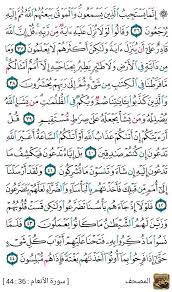 ۞ إِنَّمَا يَسْتَجِيبُ ٱلَّذِينَ يَسْمَعُونَ وَٱلْمَوْتَىٰ يَبْعَثُهُمُ ٱللَّهُ ثُمَّ إِلَيْهِ
يُرْجَعُونَ ٣٦ وَقَالُوا۟ لَوْلَا نُزِّلَ عَلَيْهِ ءَايَةٌ مِّن رَّبِّهِۦ قُلْ إِنَّ ٱللَّهَ
قَادِرٌ عَلَىٰٓ أَن يُنَزِّلَ ءَايَةً وَلَـٰكِنَّ أَكْثَرَهُمْ لَا يَعْلَمُونَ ٣٧ وَمَا
مِن دَآبَّةٍ فِى ٱلْأَرْضِ وَلَا طَـٰٓئِرٍ يَطِيرُ بِجَنَاحَيْهِ إِلَّآ أُمَمٌ أَمْثَالُكُم
مَّا فَرَّطْنَا فِى ٱلْكِتَـٰبِ مِن شَىْءٍ ثُمَّ إِلَىٰ رَبِّهِمْ يُحْشَرُونَ ٣٨
وَٱلَّذِينَ كَذَّبُوا۟ بِـَٔايَـٰتِنَا صُمٌّ وَبُكْمٌ فِى ٱلظُّلُمَـٰتِ مَن يَشَإِ ٱللَّهُ
يُضْلِلْهُ وَمَن يَشَأْ يَجْعَلْهُ عَلَىٰ صِرَٰطٍ مُّسْتَقِيمٍ ٣٩ قُلْ
أَرَءَيْتَكُمْ إِنْ أَتَىٰكُمْ عَذَابُ ٱللَّهِ أَوْ أَتَتْكُمُ ٱلسَّاعَةُ أَغَيْرَ ٱللَّهِ
تَدْعُونَ إِن كُنتُمْ صَـٰدِقِينَ ٤٠ بَلْ إِيَّاهُ تَدْعُونَ فَيَكْشِفُ مَا
تَدْعُونَ إِلَيْهِ إِن شَآءَ وَتَنسَوْنَ مَا تُشْرِكُونَ ٤١ وَلَقَدْ أَرْسَلْنَآ
إِلَىٰٓ أُمَمٍ مِّن قَبْلِكَ فَأَخَذْنَـٰهُم بِٱلْبَأْسَآءِ وَٱلضَّرَّآءِ لَعَلَّهُمْ
يَتَضَرَّعُونَ ٤٢ فَلَوْلَآ إِذْ جَآءَهُم بَأْسُنَا تَضَرَّعُوا۟ وَلَـٰكِن قَسَتْ قُلُوبُهُمْ
وَزَيَّنَ لَهُمُ ٱلشَّيْطَـٰنُ مَا كَانُوا۟ يَعْمَلُونَ ٤٣ فَلَمَّا
نَسُوا۟ مَا ذُكِّرُوا۟ بِهِۦ فَتَحْنَا عَلَيْهِمْ أَبْوَٰبَ كُلِّ شَىْءٍ
حَتَّىٰٓ إِذَا فَرِحُوا۟ بِمَآ أُوتُوٓا۟ أَخَذْنَـٰهُم بَغْتَةً فَإِذَا هُم مُّبْلِسُونَ ٤٤
المصحف [ سورة الأنعام : 36 : 44 ]